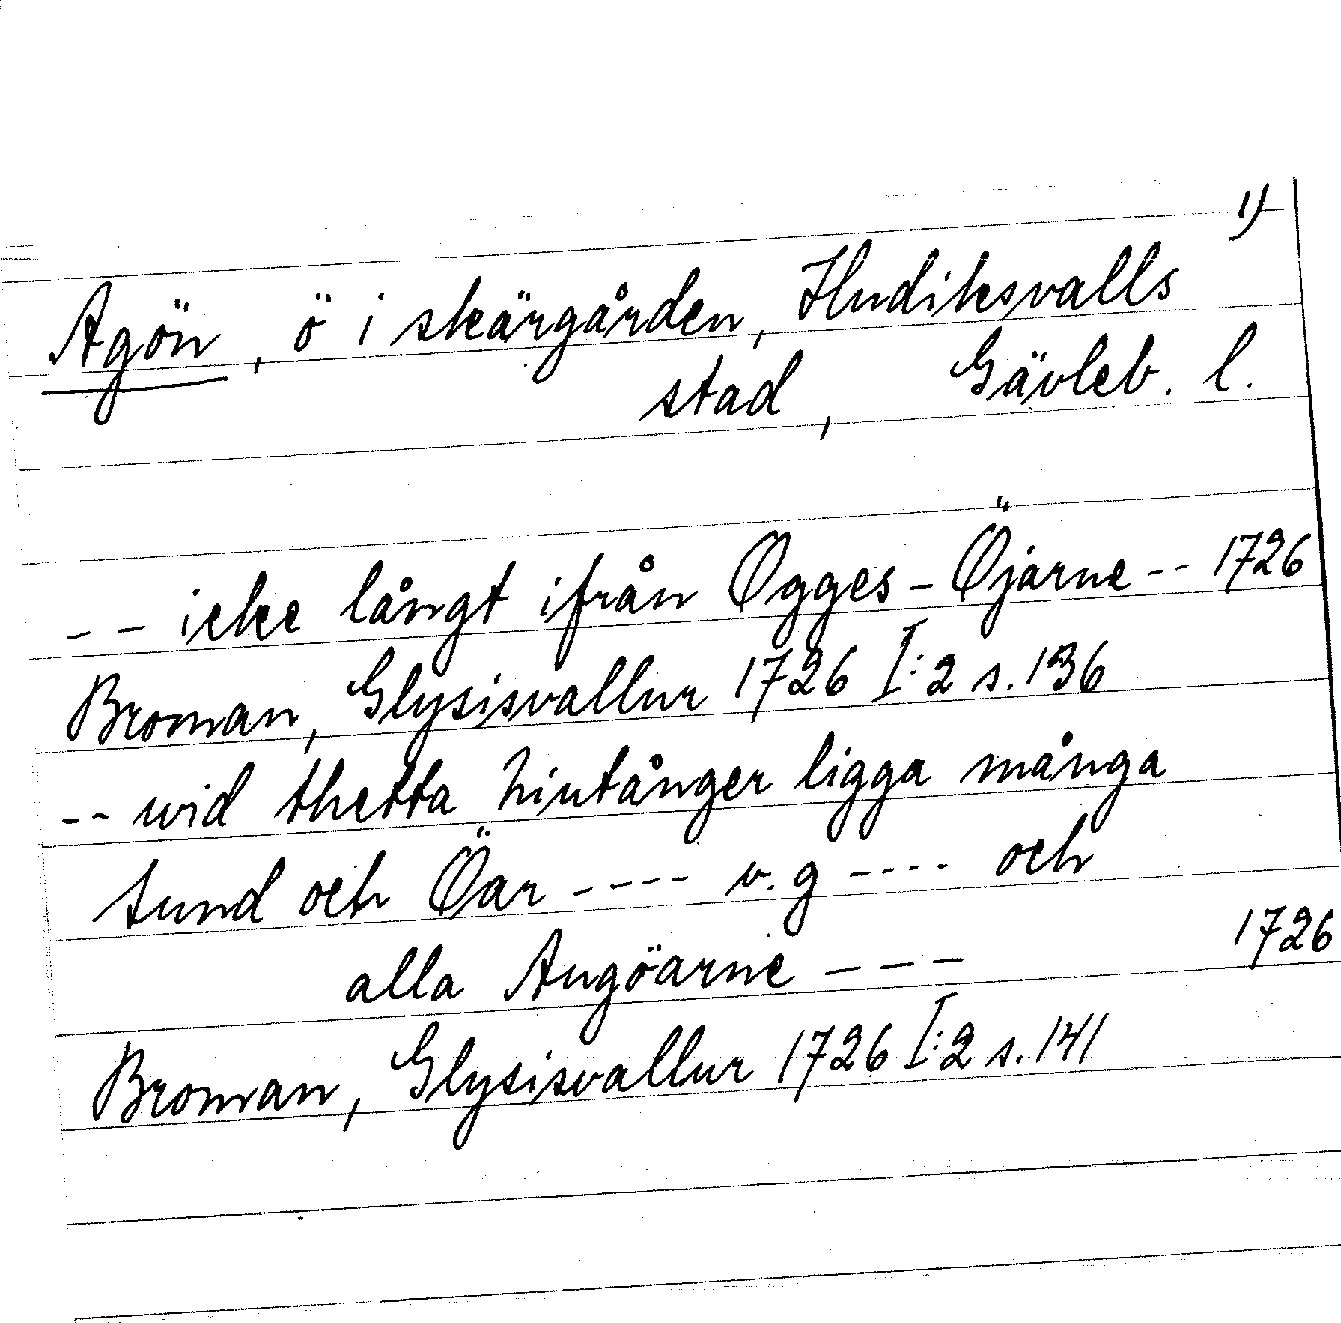 1)
Agön, ö i skärgården, Hudiksvalls
stad, Gävleb. l.
-- icke långt ifrån Ogges-Öjarne -- 1726
Broman, Glysisvallur 1726 I:2 s. 136
-- wid thetta hintånger ligga många
sund och Öar ---- v.g ---- och
alla Augöarne --- 1726
Broman, Glysisvallur 1726 I:2 s. 141